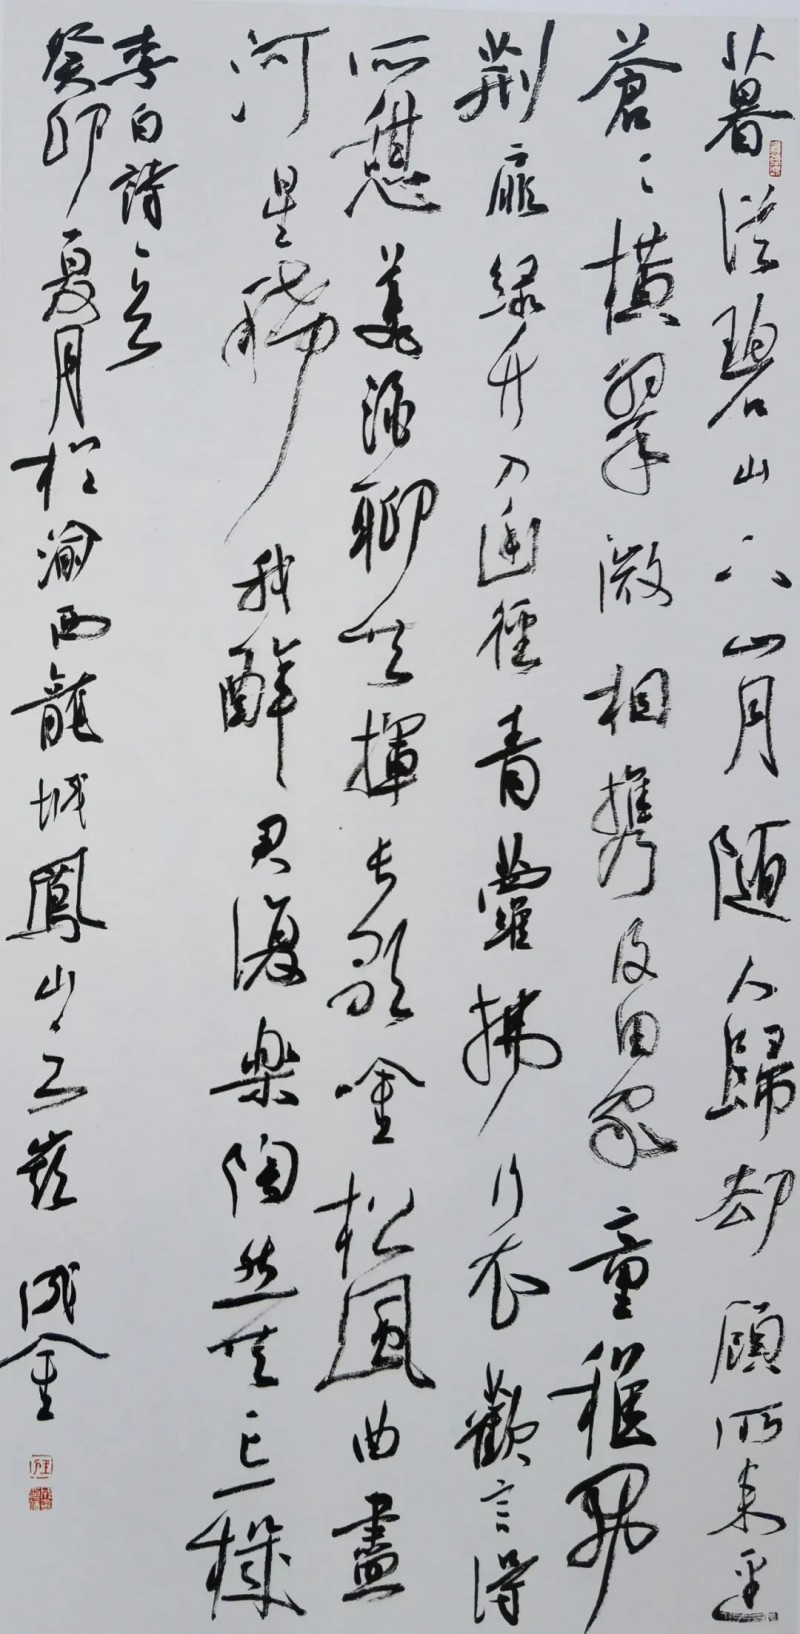 暮從碧山下山月隨人歸却顧所来逕
蒼々橫翠微相攜及田家童稚開
荆扉绿竹入幽徑青蘿拂行衣歡言得
所憩美酒聊共揮长歌吟松風曲盡
河星稀我醉君復樂陶然共忘機
李白詩一首
癸卯夏月於渝西龍城鳳山 成金